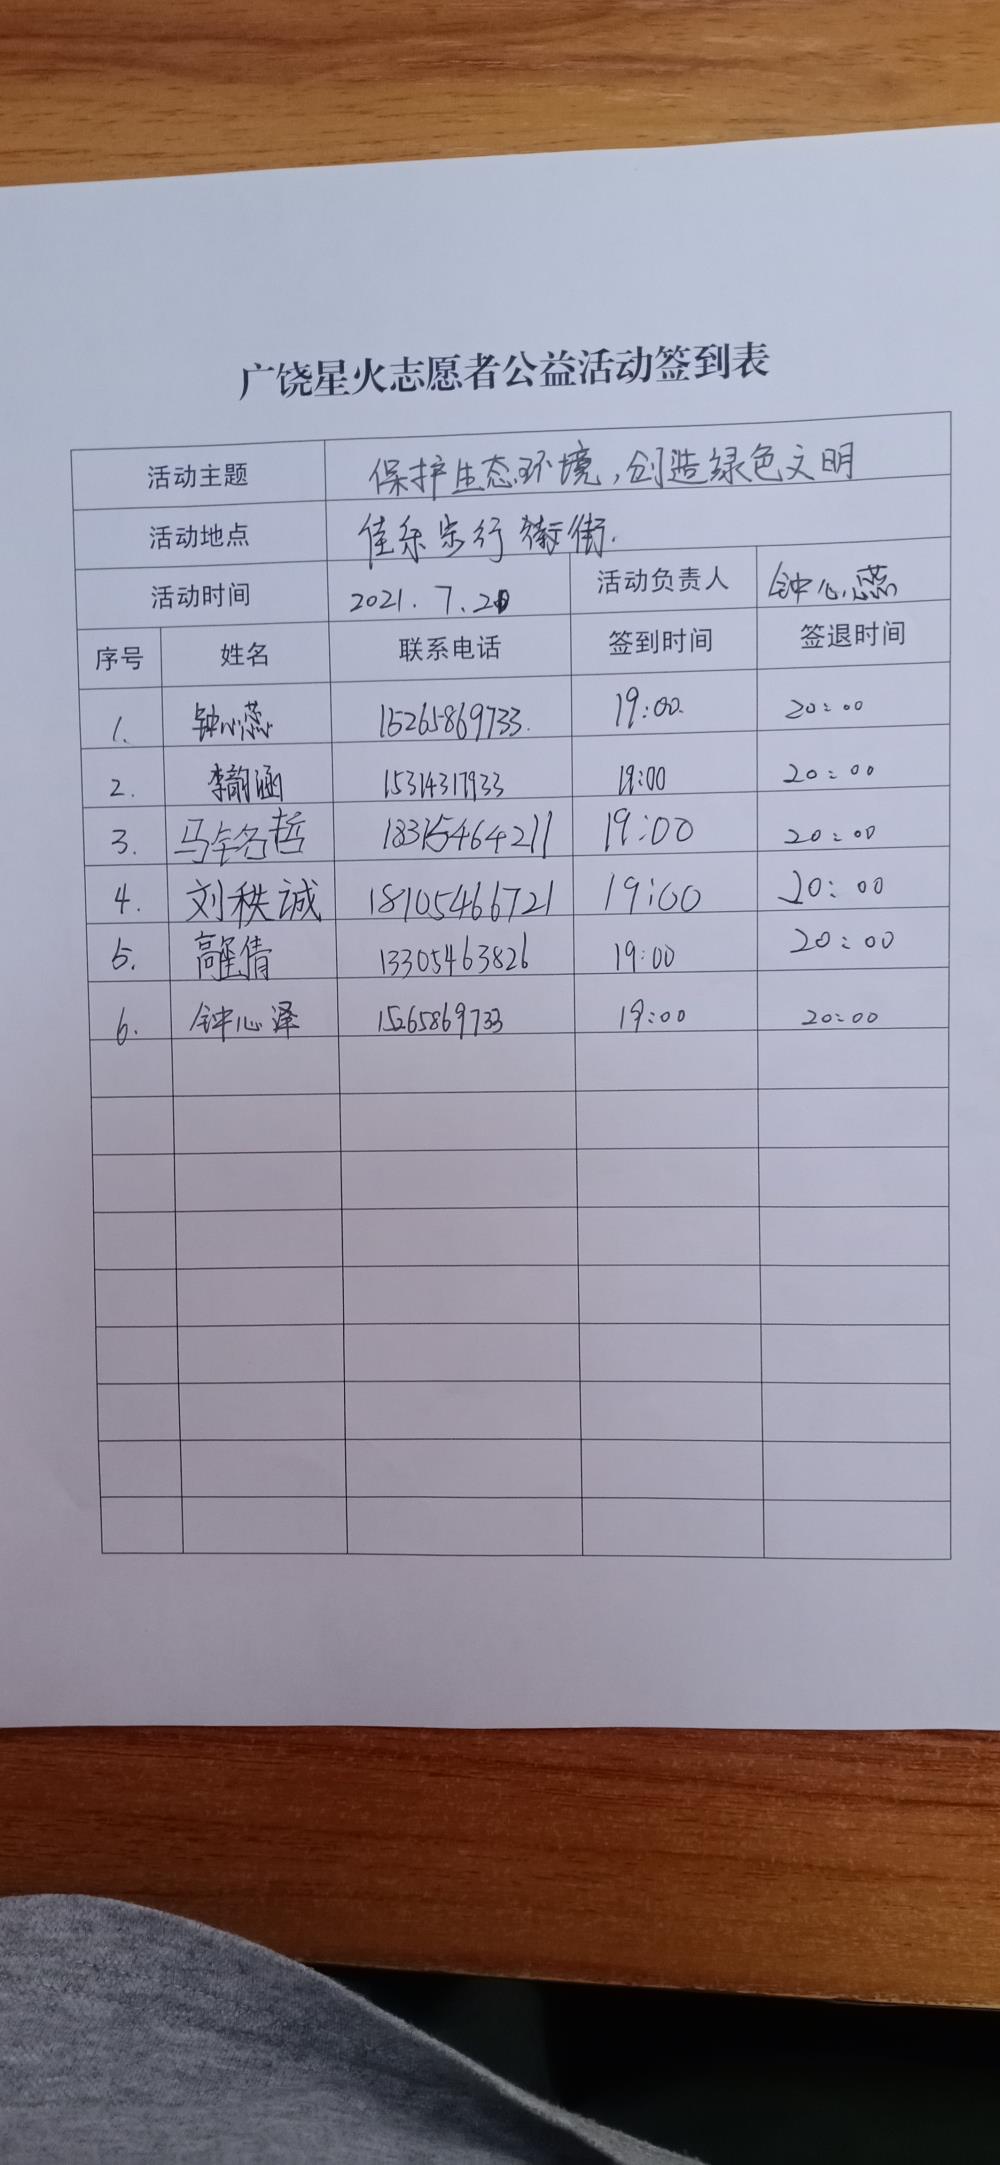 广饶星火志愿者公益活动签到表
活动主题 保护生态环境,创造绿色文明
活动地点 佳乐步行街.
活动时间 2021.7.20 活动负责人 钟心蕊
序号 姓名 联系电话 签到时间 签退时间
1. 钟心蕊 15265869733. 19:00. 20:00
2. 李韵涵 15314317933 19:00 20:00
3. 马铭哲 18315464211 19:00 20:00
4. 刘秩诚 18105466721 19:00 20:00
5. 高倩 13305463826 19:00 20:00
6. 钟心泽 15265869733 19:00 20:00